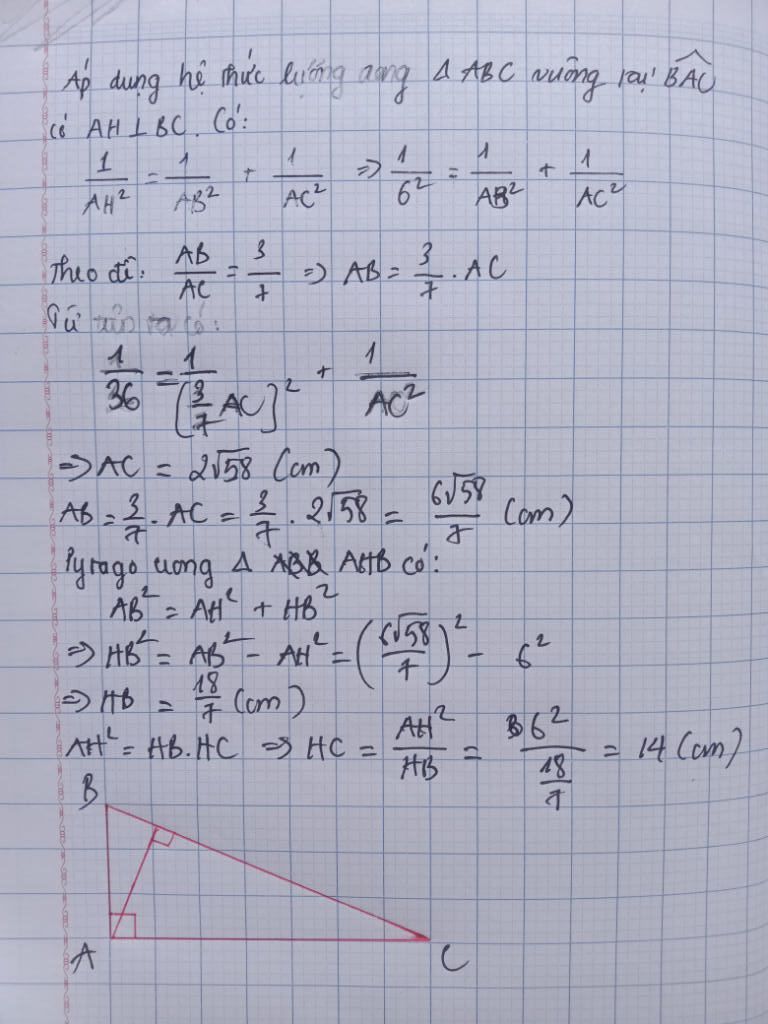 Áp dụng hệ thức lượng trong Δ ABC vuông tại BAC
có AH ⊥ BC. Có:
1/AH² = 1/AB² + 1/AC² => 1/6² = 1/AB² + 1/AC²
Theo đề: AB/AC = 3/7 => AB = 3/7 . AC
Từ trên ta có:
1/36 = 1/[3/7 AC]² + 1/AC²
=> AC = 2√58 (cm)
AB = 3/7 . AC = 3/7 . 2√58 = 6√58/7 (cm)
Pytago trong Δ AHB có:
AB² = AH² + HB²
=> HB² = AB² - AH² = (6√58/7)² - 6²
=> HB = 18/7 (cm)
AH² = HB.HC => HC = AH²/HB = 6²/(18/7) = 14 (cm)
B
A
C